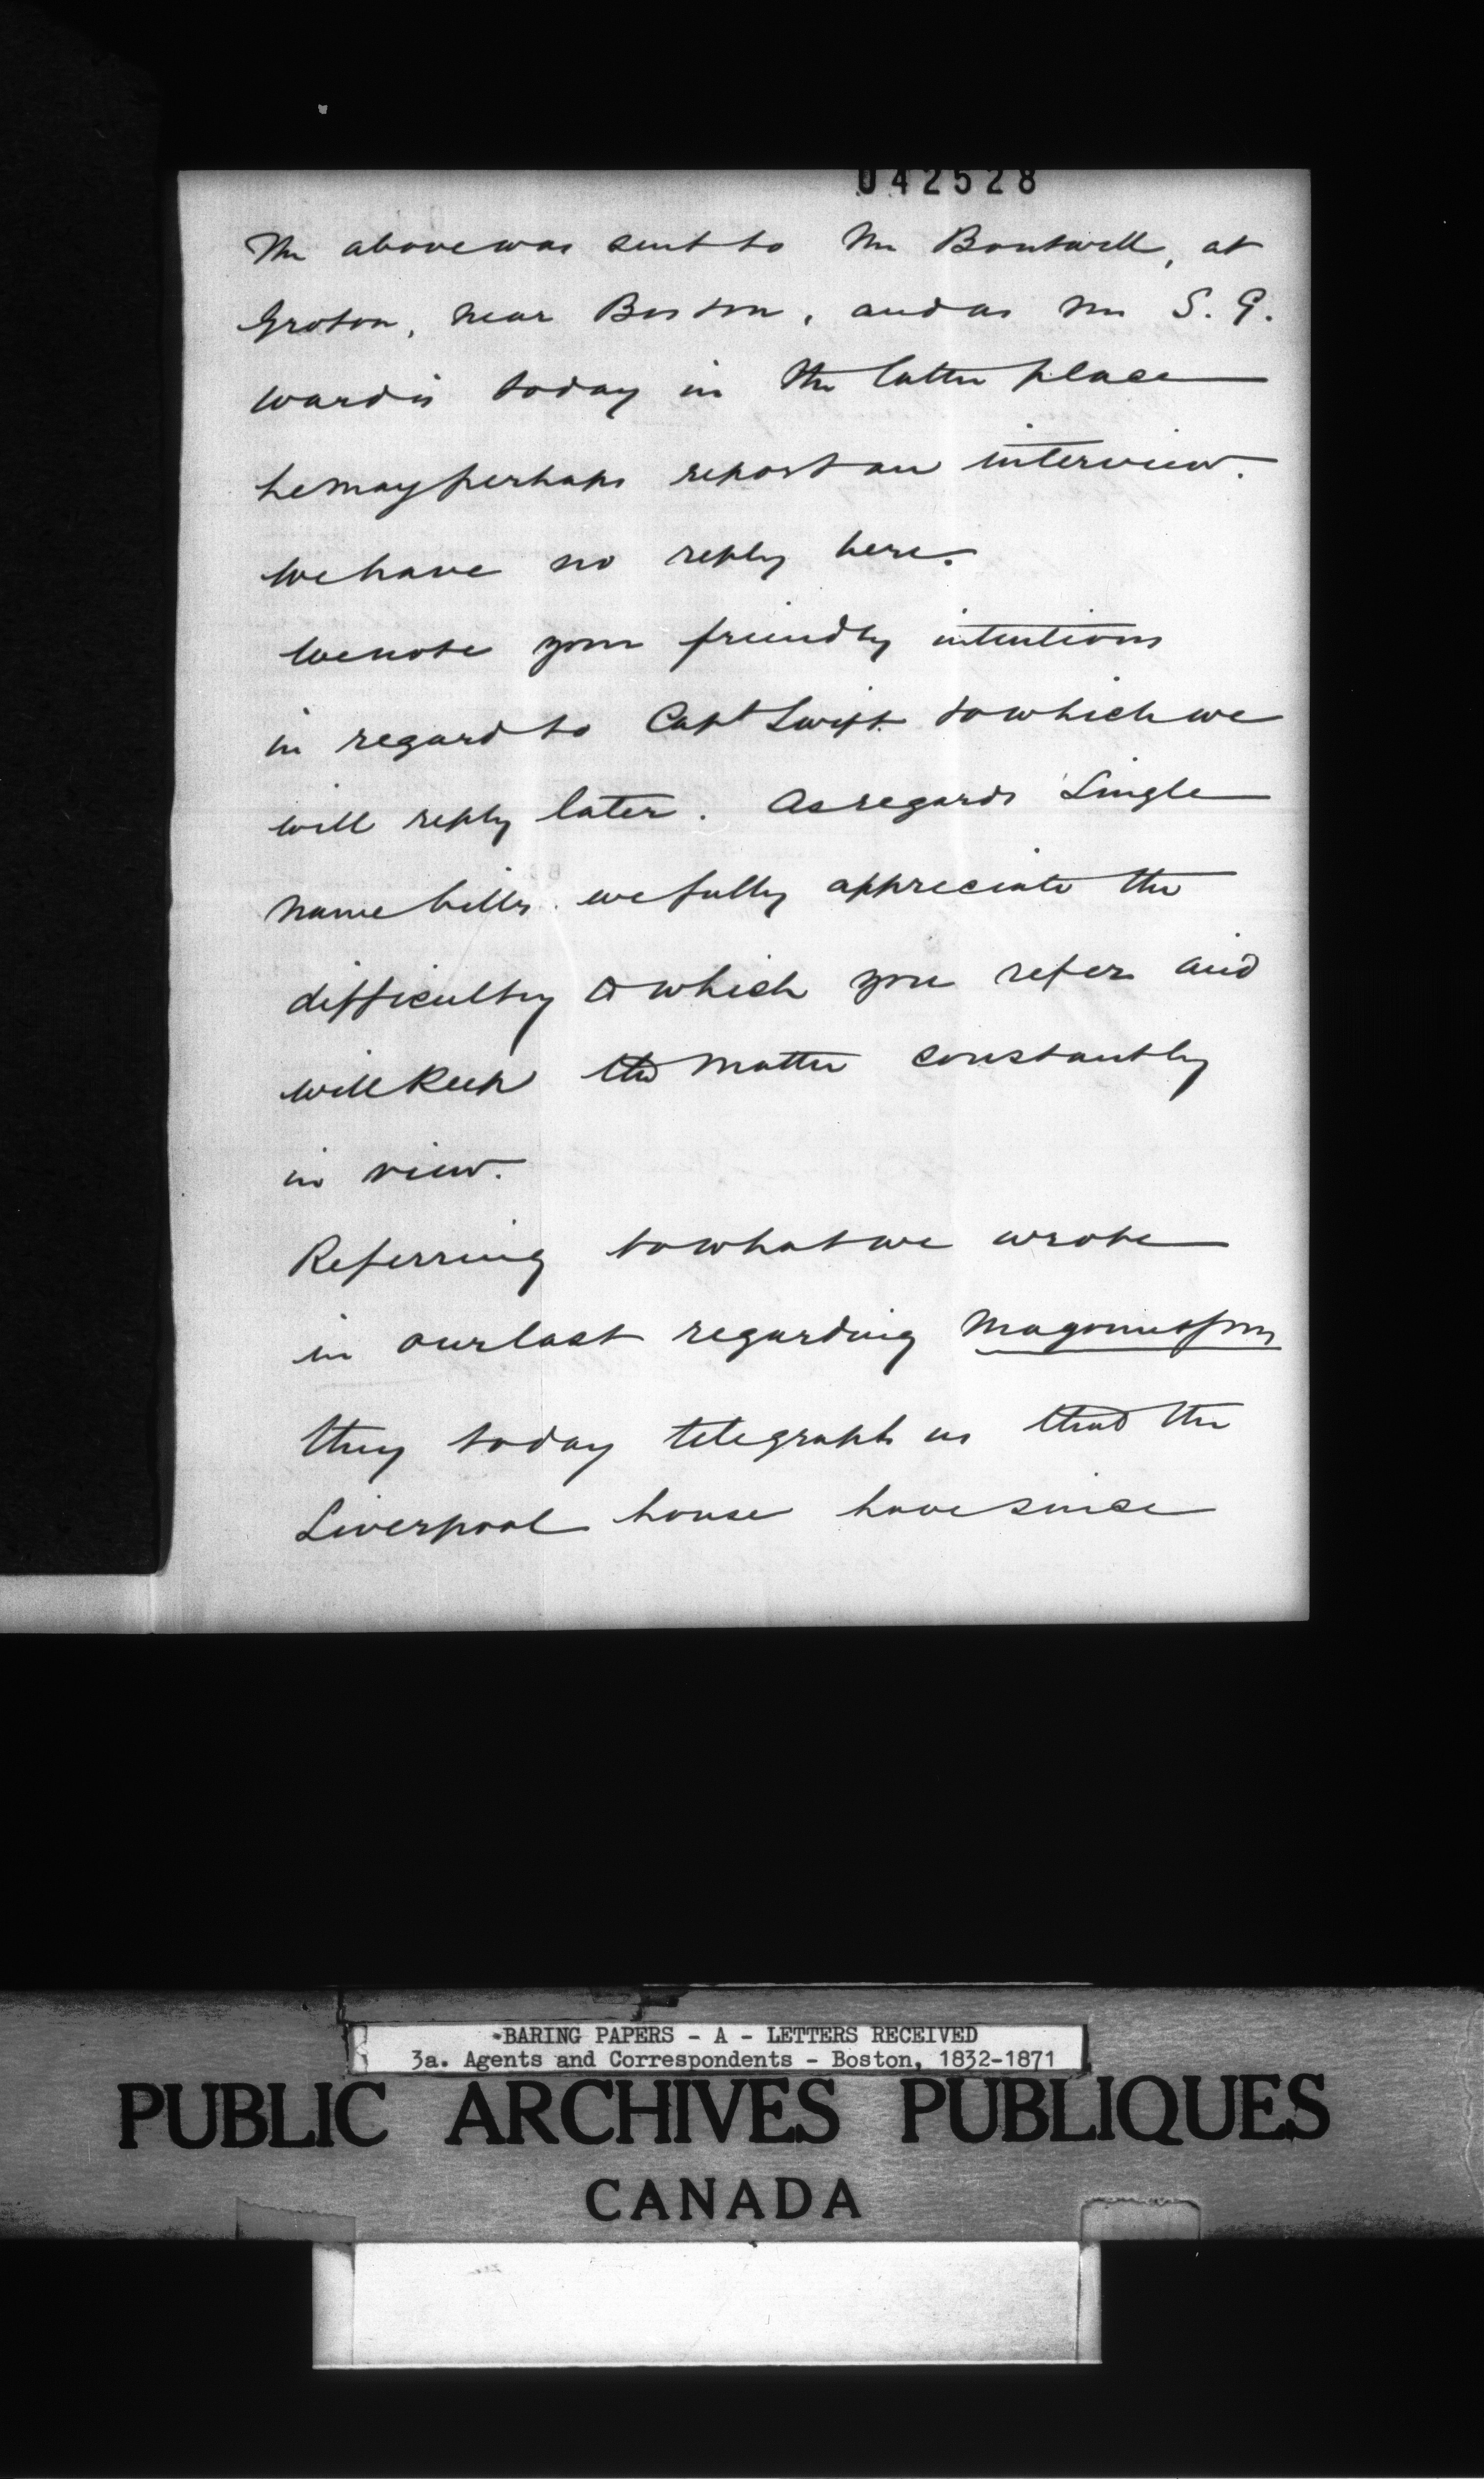 042528
The above was sent to Mr Boutwell, at
Groton, near Boston, and as Mr S. G.
Ward is today in the latter place
he may perhaps report an interview.
We have no reply here.
We note your friendly intentions
in regard to Capt Swift to which we
will reply later. As regards Single
name bills we fully appreciate the
difficulty to which you refer and
will keep the matter constantly
in view.
Referring to what we wrote
in our last regarding
they today telegraph us that the
Liverpool house have since
BARING PAPERS - A - LETTERS RECEIVED
3a. Agents and Correspondents - Boston, 1832-1871
PUBLIC ARCHIVES PUBLIQUES
CANADA